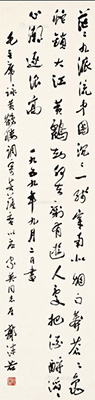 茫々九派流中国沉々一线穿南北烟雨莽苍々
龟蛇锁大江黄鹤知何去剩有游人处把酒酹滔々
心潮逐浪高 一九五九年九月二日书
毛主席詠黄鹤楼调寄菩萨蛮 家英同志 郭沫若